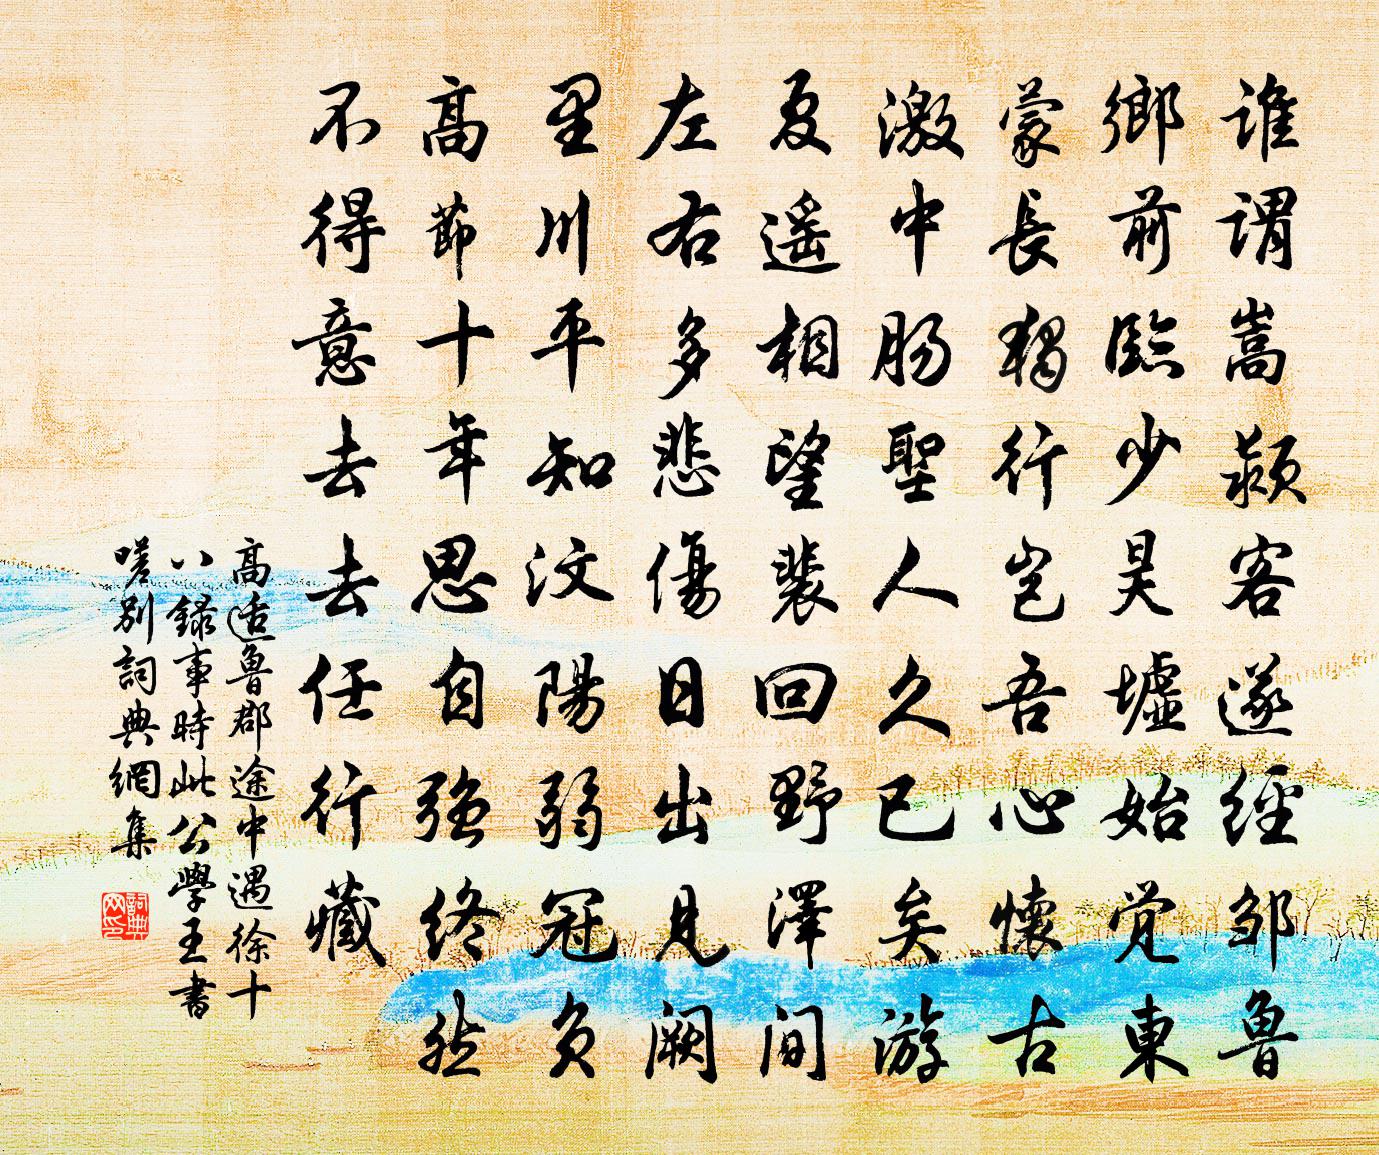 誰謂嵩潁客遂經邹魯
鄉前臨少昊墟始覚東
蒙長獨行豈吾心懷古
激中腸聖人久已矣游
夏遥相望裴回野澤間
左右多悲傷日出見闕
里川平知汶陽弱冠負
高節十年思自強終然
不得意去去任行藏
高适魯郡途中遇徐十
八録事時此公學王書
嗟别詞典網集
詞典网印